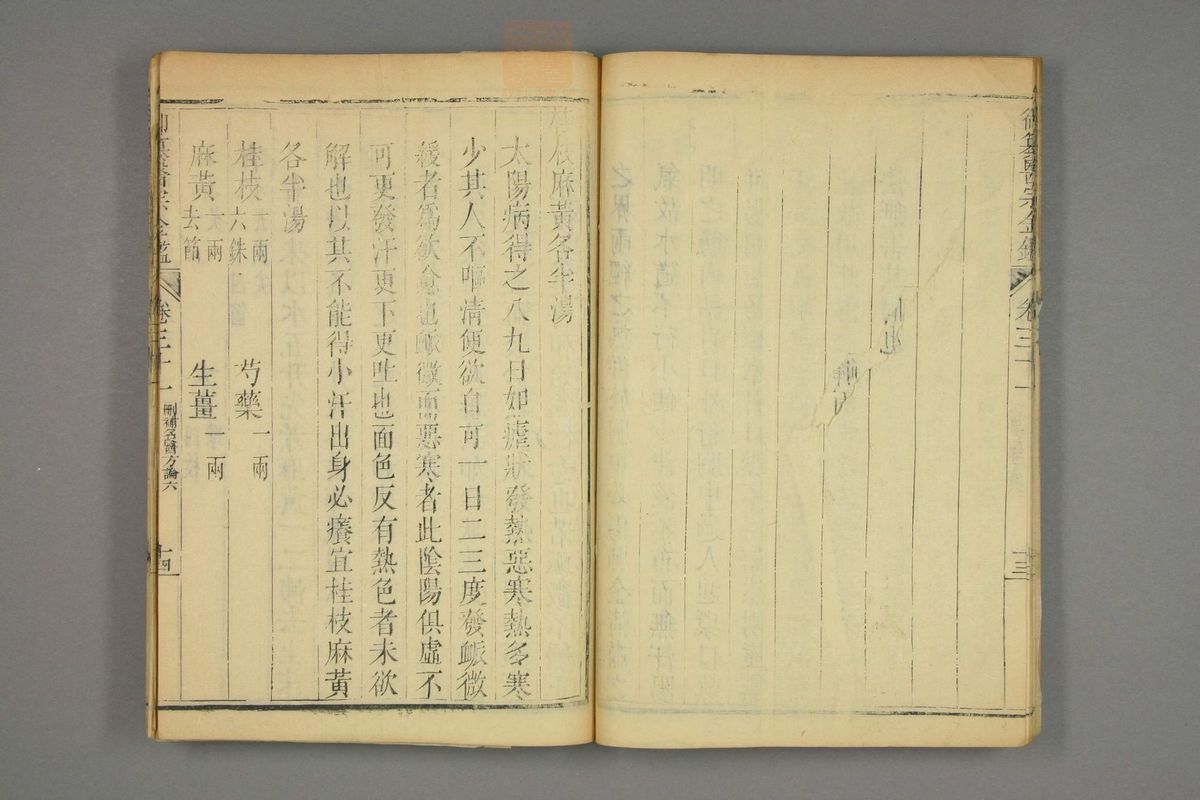 御纂醫宗金鑑
卷三十一
十三
桂枝麻黃各半湯
太陽病得之八九日如瘧狀發熱惡寒熱多寒
少其人不嘔清便欲自可一日二三度發脈微
緩者為欲愈也脈微而惡寒者此陰陽俱虛不
可更發汗更下更吐也面色反有熱色者未欲
解也以其不能得小汗出身必癢宜桂枝麻黃
各半湯
桂枝一兩六銖 芍藥一兩
麻黃一兩去節 生薑一兩
御纂醫宗金鑑
卷三十一
刪補名醫方論六
十四